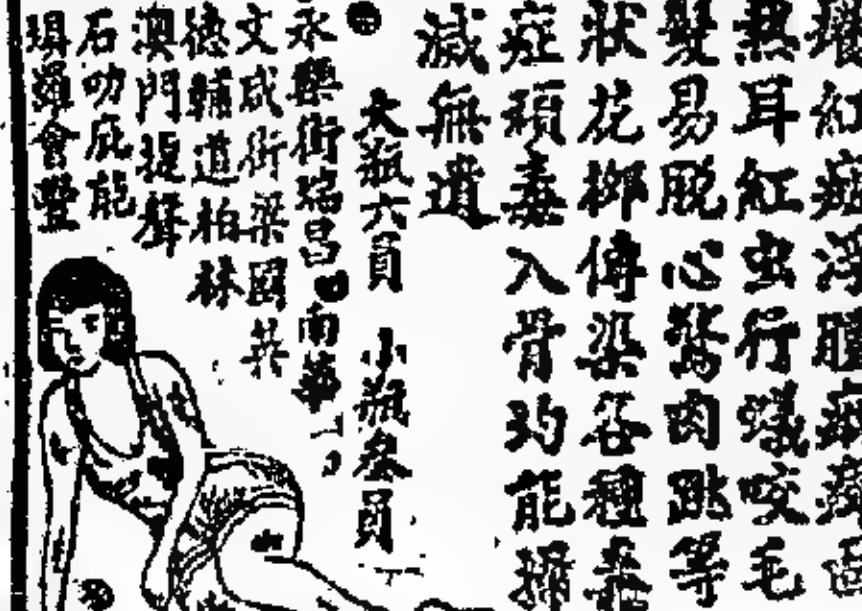 壞紅痘浮腫麻癢面
熱耳紅虫行蟻咬毛
髮易脫心驚肉跳等
狀花柳傳染各種毒
症頑毒入骨均能掃
滅無遺
大瓶六員 小瓶叁員
永樂街瑞昌 南華
文咸街梁國英
德輔道柏林
澳門提督
石叻庇能
埧羅會豐